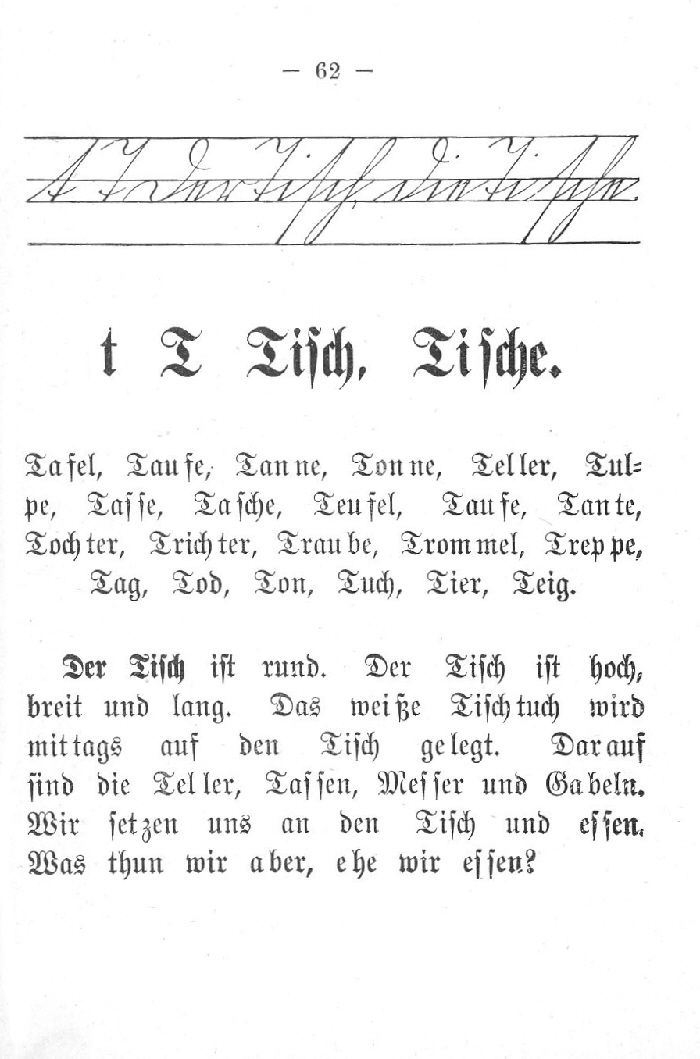 — 62 —
t T der Tisch, die Tische.
t T Tisch, Tische.
Tafel, Taufe, Tanne, Tonne, Teller, Tul-
pe, Tasse, Tasche, Teufel, Taufe, Tante,
Tochter, Trichter, Traube, Trommel, Treppe,
Tag, Tod, Ton, Tuch, Tier, Teig.
Der Tisch ist rund. Der Tisch ist hoch,
breit und lang. Das weiße Tischtuch wird
mittags auf den Tisch gelegt. Darauf
sind die Teller, Tassen, Messer und Gabeln.
Wir setzen uns an den Tisch und essen.
Was thun wir aber, ehe wir essen?